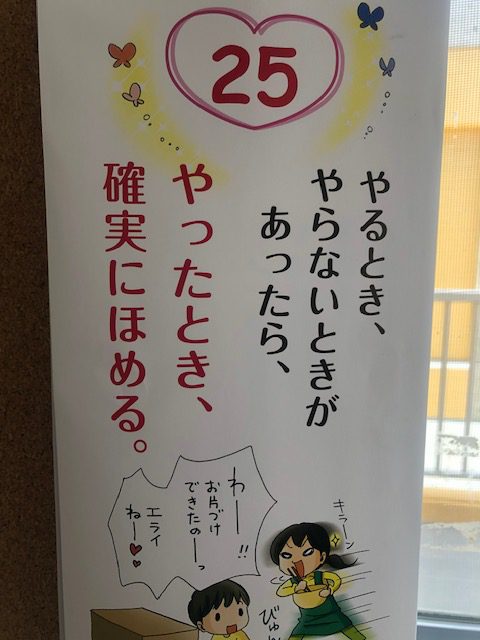 25
やるとき、
やらないときが
あったら、
やったとき、
確実にほめる。
わー!!
お片づけ
できたのーっ
エライ
ねー♥♥
キラーン
びゅん